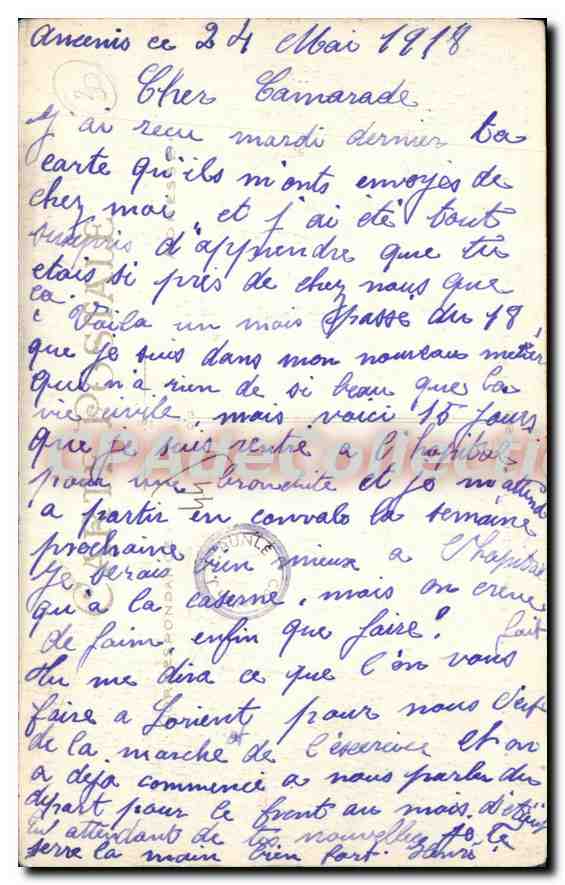 Ancenis ce 24 Mai 1918
Cher Camarade
J'ai reçu mardi dernier ta
carte qu'ils m'onts envoyés de
chez moi et j'ai été tout
surpris d'apprendre que tu
etais si près de chez nous que
ça. Voila un mois passé du 18
que je suis dans mon nouveau metier
qui n'a rien de si beau que la
vie civile, mais voici 15 jours
que je suis rentré a l'hopital
pour une bronchite et je m'attend
a partir en convalo la semaine
prochaine bien mieux a l'hopital
Je serais
qu'a la caserne, mais on creve
de faim enfin que faire!
tu me dira ce que l'on vous
faire a Lorient pour nous
de la marche de l'exercice et on
a deja commencé a nous parler du
depart pour le front au mois
attendant de tes nouvelles je te
serre la main bien fort. Henri
CARTE POSTALE
CORRESPONDANCE
CPAdeCollection